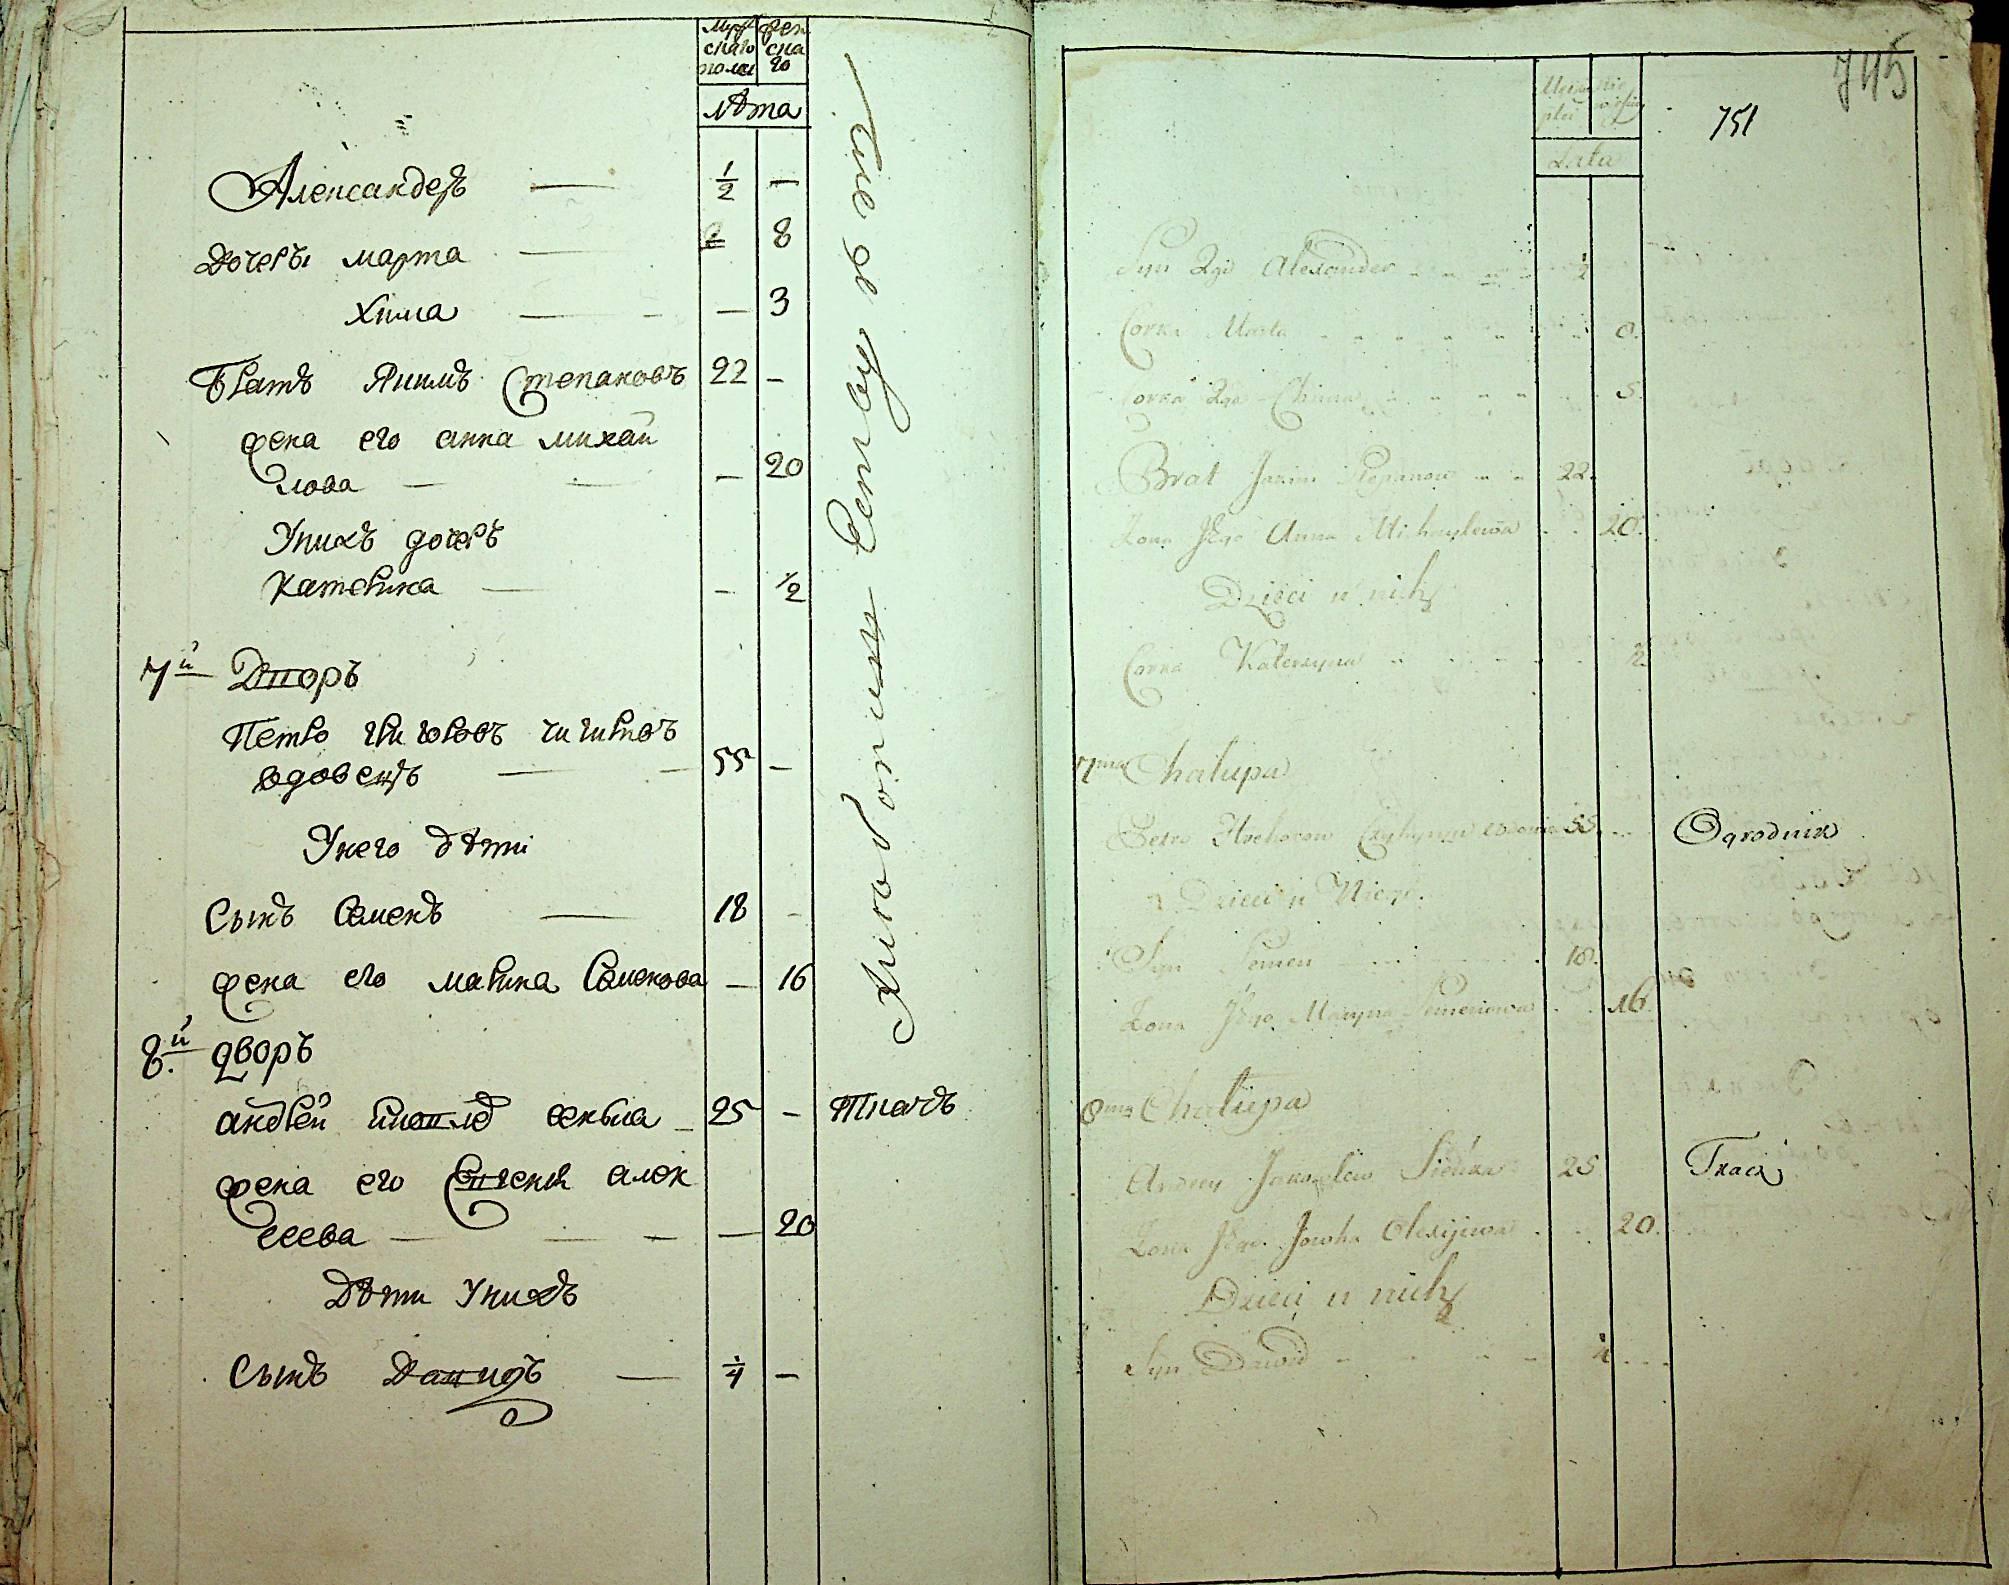 Мужскаго полу Женскаго
лѣта
Александеръ — ½ —
Дочеръ марта — 8
Хима — — 3
Братъ Якимъ Степановъ 22 —
жена его анна михай
лова — — 20
Унихъ дочеръ
Катерина — — ½
7й Дворъ
Петро григоровъ чигиринъ
вдовецъ — 55 —
Унего дѣти
Сынъ Семенъ — 18 —
жена его марина Семенова — 16
8.й дворъ
андрей яковлѣ сенька 25 — Ткачъ
жена его алек
сеева — — 20
Дѣти Унихъ
Сынъ Давидъ — ¼ —
745
751
Lata
Syn 2gi Alexander ½
Corka Marta 8.
Corka 2ga Chima 3.
Brat Jakim Stepanow 22.
Zona Jego Anna Michayłowa 20.
Dzieci u nich
Corka Katerzyna ½
7ma Chałupa
Petro Hrehorow 55. Ogrodnik
Dzieci u Niego
Syn Semen 18.
Zona Jego Maryna Semenowa 16
8ma Chałupa
Andrey Jakowlew Sieńka 25 Tkacz
Zona Jego Jowha Olexijewa 20.
Dzieci u nich
Syn Dawid ¼